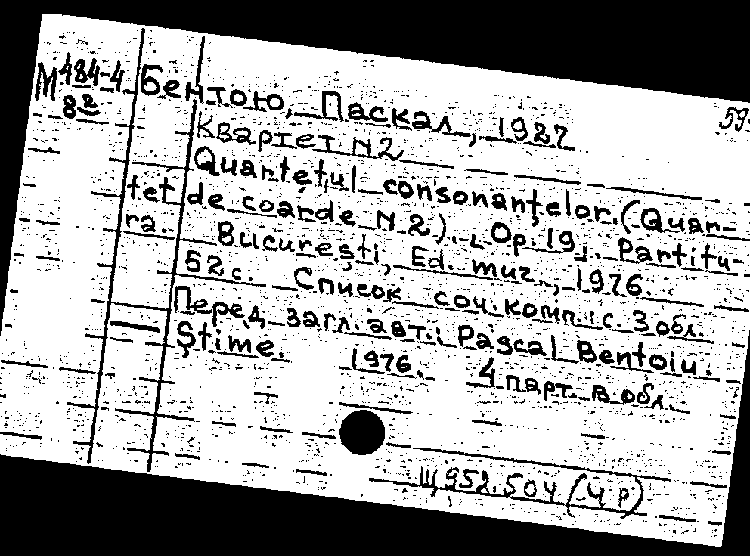 М 484-4 Бентою, Паскал, 1927
8² 59
Квартет N 2
Quartetul consonanțelor. (Quar-
tet de coarde N 2). Op. 19. Partitu-
ra. București, Ed. muz., 1976.
52 с. Список соч. комп.: с. 3 обл.
Перед загл. авт.: Pascal Bentoiu.
Știme. 1976. 4 парт. в обл.
Щ 952.504 (4 Р)